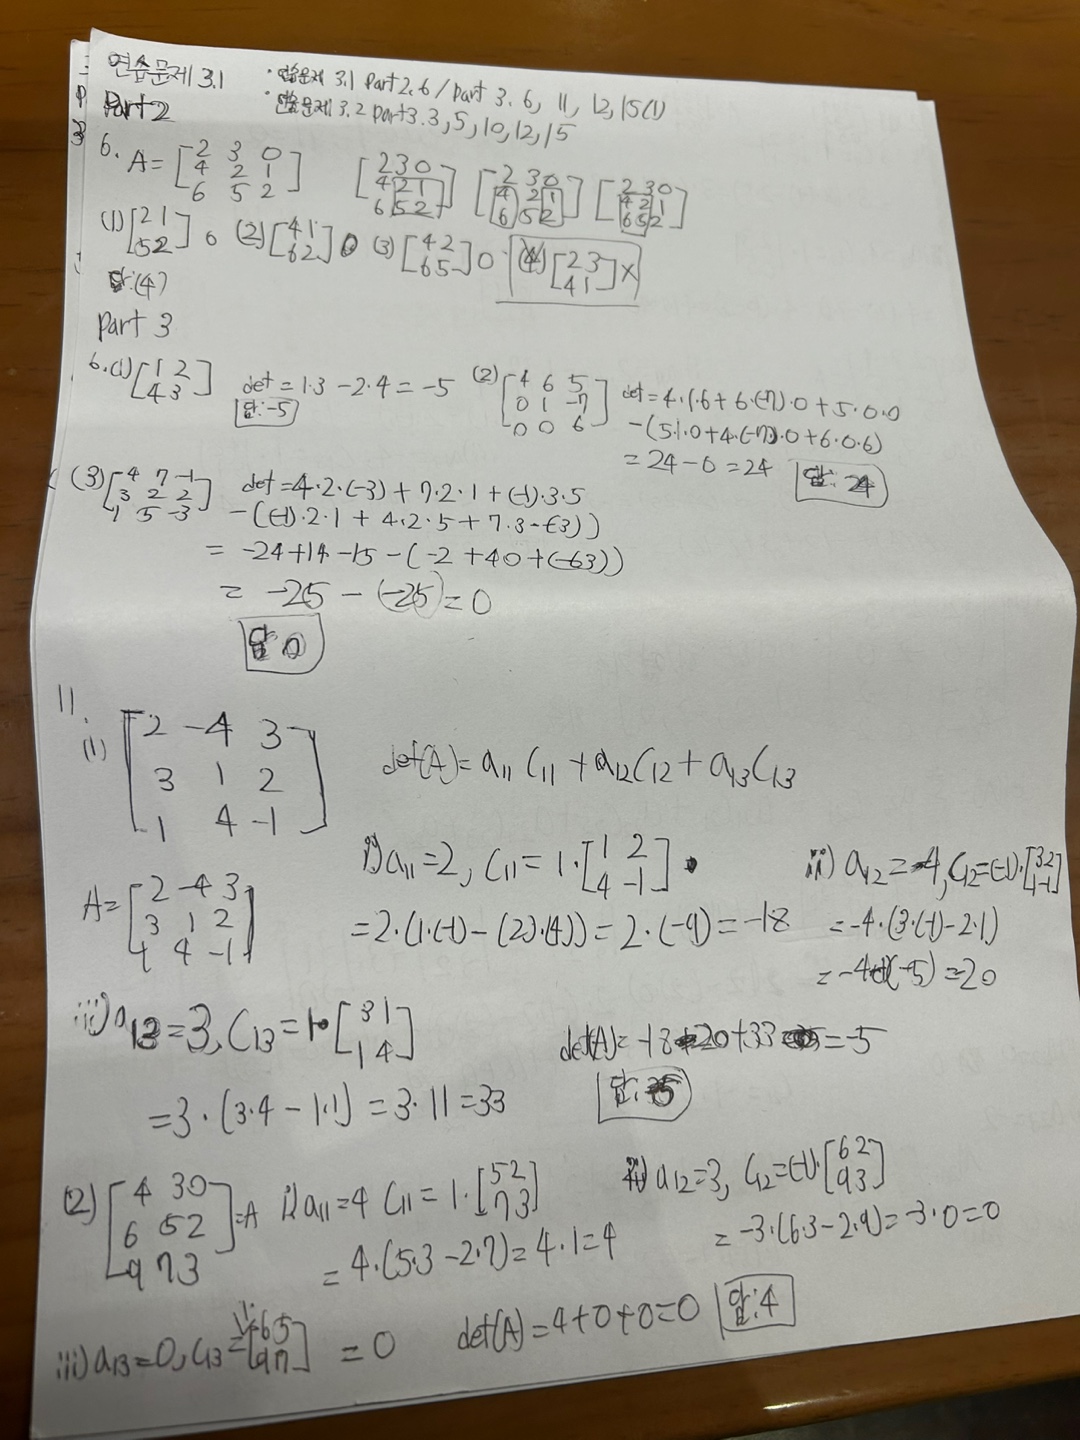 연습문제 3.1
Part 2
· 연습문제 3.1 Part 2. 6 / Part 3. 6, 11, 12, 15(1)
· 연습문제 3.2 Part 3. 3, 5, 10, 12, 15
6. A = [2 3 0
4 2 1
6 5 2]
[2 3 0
4 2 1
6 5 2] [2 3 0
4 2 1
6 5 2] [2 3 0
4 2 1
6 5 2]
(1) [2 1
5 2] o (2) [4 1
6 2] o (3) [4 2
6 5] o (4) [2 3
4 1] x
답: (4)
Part 3
6. (1) [1 2
4 3] det = 1·3 - 2·4 = -5
답: -5
(2) [4 6 5
0 1 -7
0 0 6] det = 4·1·6 + 6·(-7)·0 + 5·0·0
- (5·1·0 + 4·(-7)·0 + 6·0·6)
= 24 - 0 = 24 답: 24
(3) [4 7 -1
3 2 2
1 5 -3] det = 4·2·(-3) + 7·2·1 + (-1)·3·5
- ((-1)·2·1 + 4·2·5 + 7·3·(-3))
= -24+14-15-(-2+40+(-63))
= -25 - (-25) = 0
답: 0
11.
(1) [2 -4 3
3 1 2
1 4 -1]
det(A) = a11 C11 + a12 C12 + a13 C13
A = [2 -4 3
3 1 2
1 4 -1]
i) a11 = 2, C11 = 1·[1 2
4 -1]
= 2·(1·(-1) - (2)·(4)) = 2·(-9) = -18
ii) a12 = -4, C12 = (-1)·[3 2
1 -1]
= -4·(3·(-1) - 2·1)
= -4 (-5) = 20
iii) a13 = 3, C13 = 1·[3 1
1 4]
= 3·(3·4 - 1·1) = 3·11 = 33
det(A) = -18 -20+33 = -5
답: -5
(2) [4 3 0
6 5 2
9 7 3] = A i) a11 = 4 C11 = 1·[5 2
7 3]
= 4·(5·3 - 2·7) = 4·1 = 4
ii) a12 = 3, C12 = (-1)·[6 2
9 3]
= -3·(6·3 - 2·9) = -3·0 = 0
iii) a13 = 0, C13 = 1·[6 5
9 7] = 0
det(A) = 4+0+0=0 답: 4